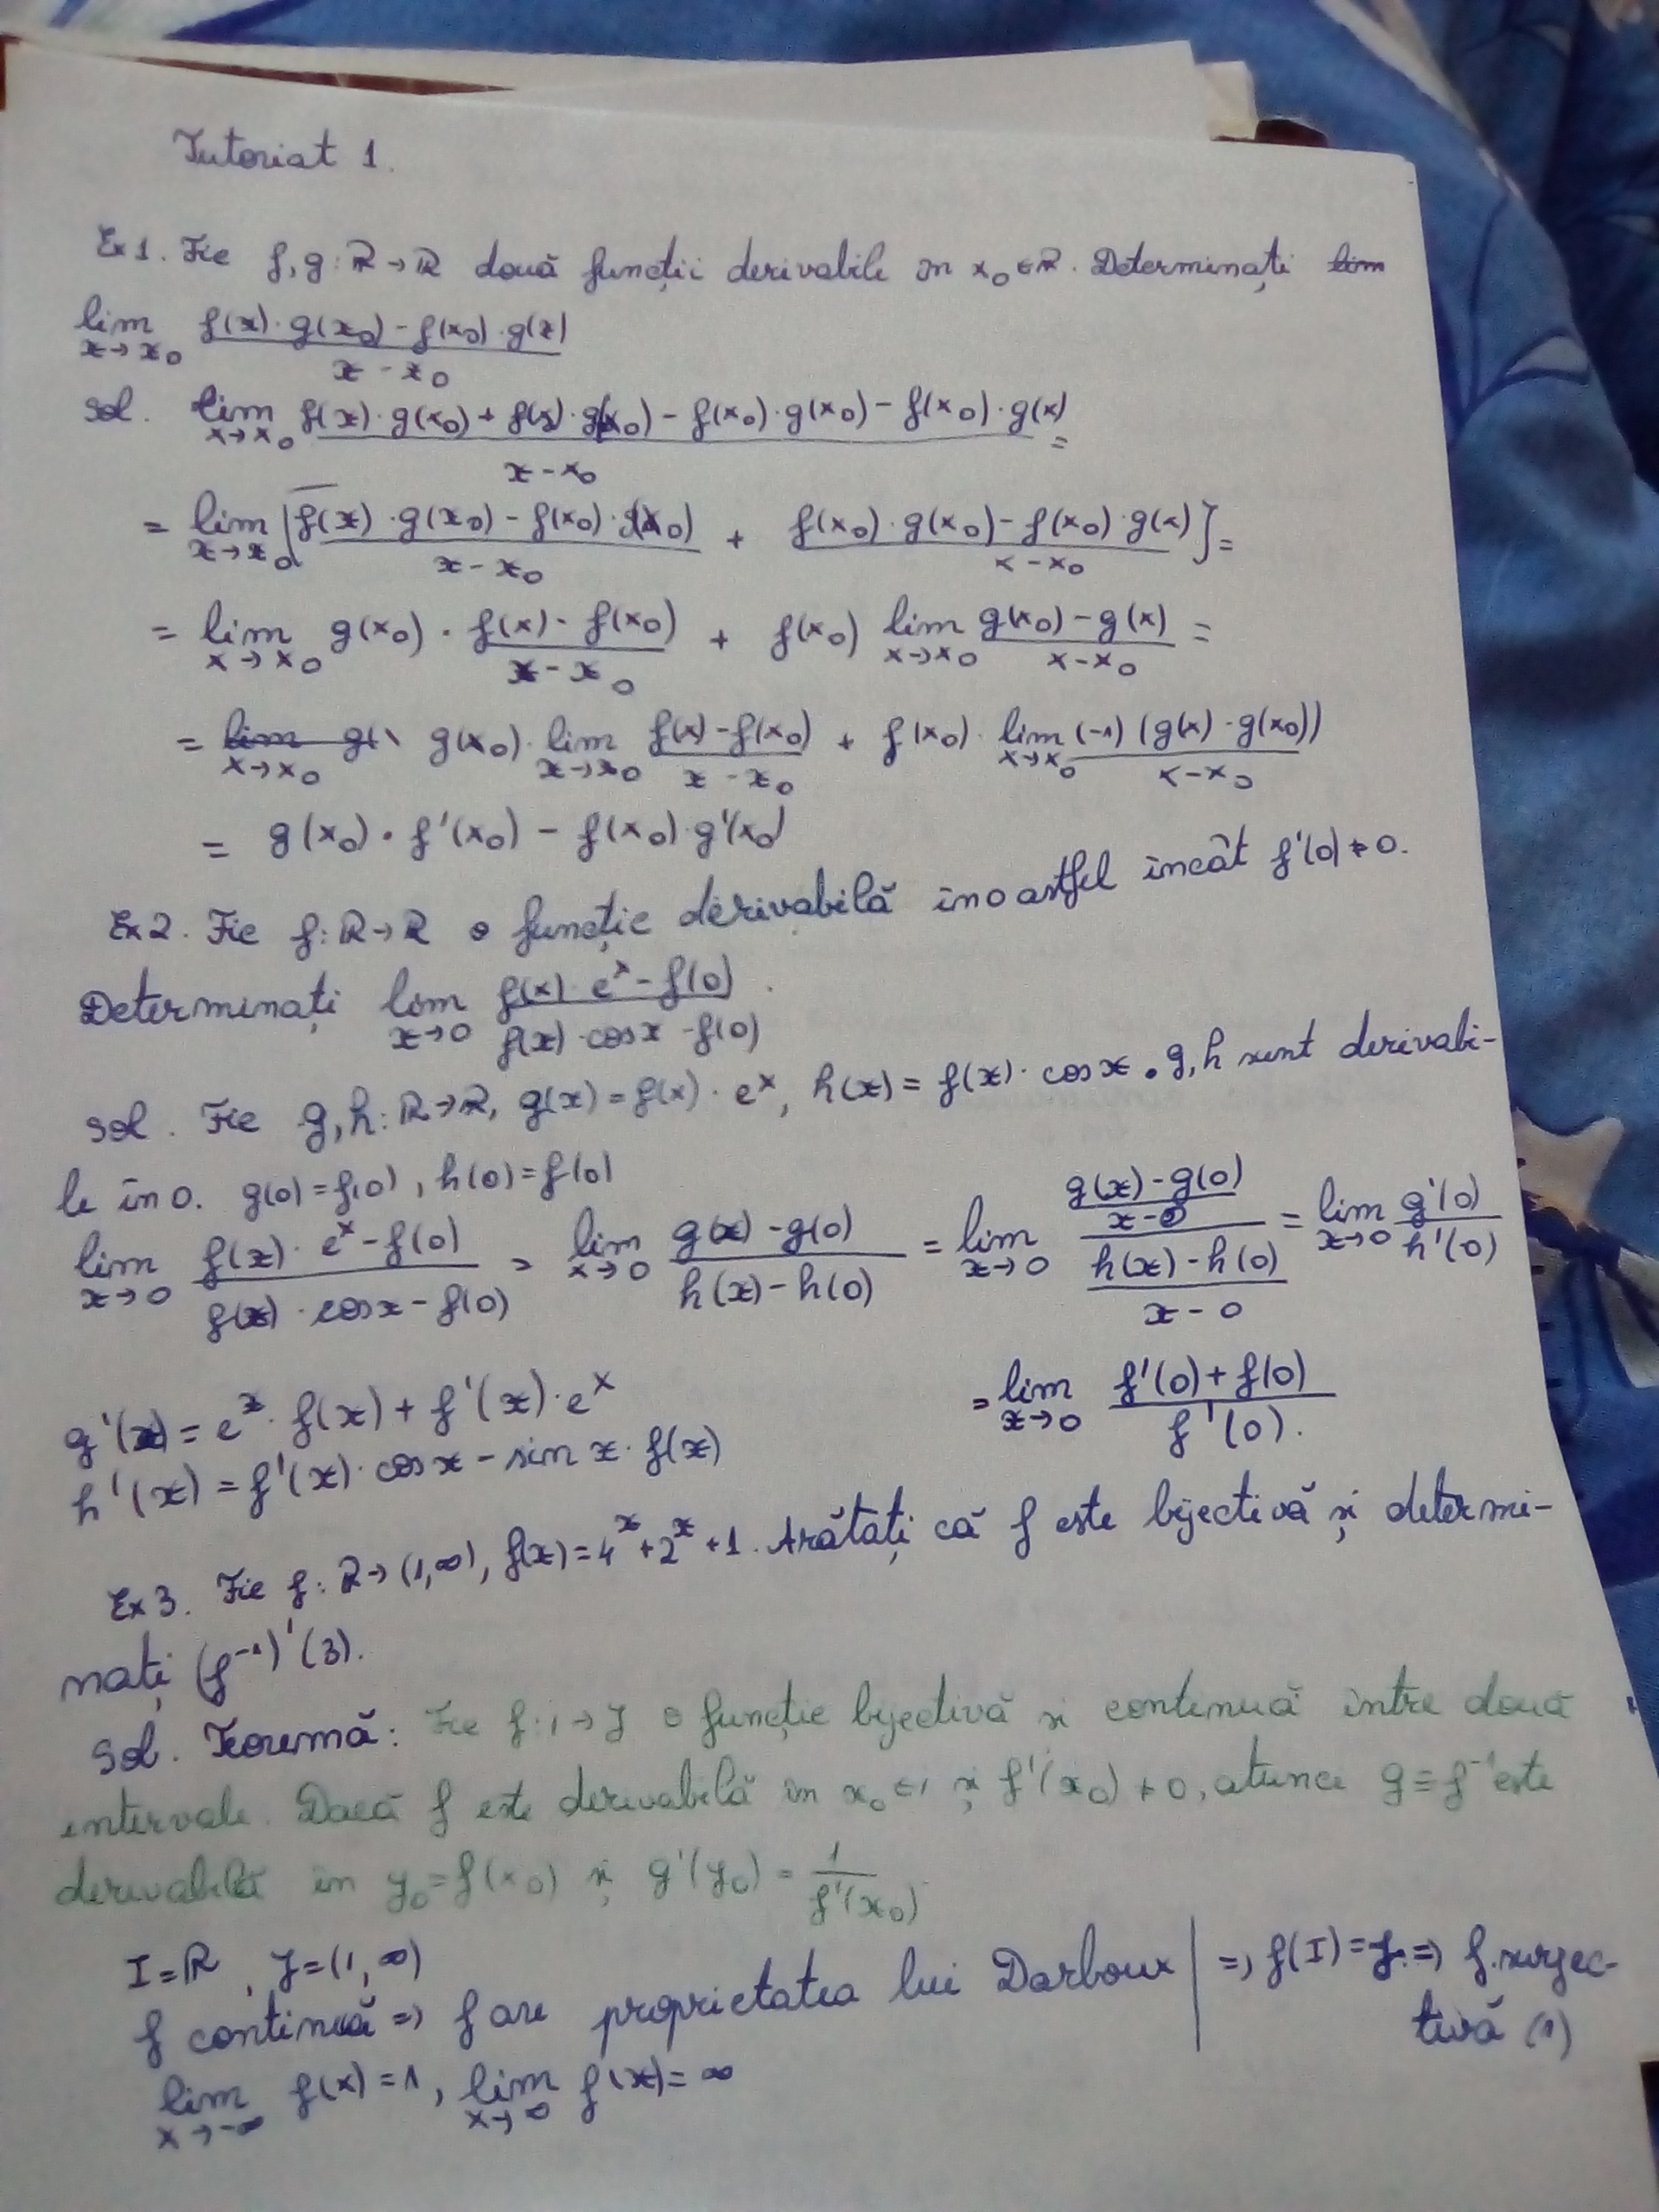 Tutoriat 1.
Ex1. Fie f,g:ℝ→ℝ două funcții derivabile în x₀∈ℝ. Determinați
lim_{x→x₀} (f(x)·g(x₀) - f(x₀)·g(x))/(x-x₀)
sol. lim_{x→x₀} (f(x)·g(x₀) + f(x₀)·g(x₀) - f(x₀)·g(x₀) - f(x₀)·g(x))/(x-x₀) =
= lim_{x→x₀} [(f(x)·g(x₀) - f(x₀)·g(x₀))/(x-x₀) + (f(x₀)·g(x₀) - f(x₀)·g(x))/(x-x₀)] =
= lim_{x→x₀} g(x₀) · (f(x) - f(x₀))/(x-x₀) + f(x₀) lim_{x→x₀} (g(x₀) - g(x))/(x-x₀) =
= g(x₀)· lim_{x→x₀} (f(x) - f(x₀))/(x-x₀) + f(x₀)· lim_{x→x₀} (-1)(g(x) - g(x₀))/(x-x₀)
= g(x₀)·f'(x₀) - f(x₀)·g'(x₀)
Ex2. Fie f:ℝ→ℝ o funcție derivabilă în 0 astfel încât f'(0)≠0.
Determinați lim_{x→0} (f(x)·eˣ - f(0))/(f(x)·cosx - f(0)).
sol. Fie g,h:ℝ→ℝ, g(x)=f(x)·eˣ, h(x)=f(x)·cosx. g,h sunt derivabi-
le în 0. g(0)=f(0), h(0)=f(0)
lim_{x→0} (f(x)·eˣ - f(0))/(f(x)·cosx - f(0)) = lim_{x→0} (g(x) - g(0))/(h(x) - h(0)) = lim_{x→0} ((g(x)-g(0))/(x-0))/((h(x)-h(0))/(x-0)) = lim_{x→0} g'(0)/h'(0)
= lim_{x→0} (f'(0)+f(0))/f'(0).
g'(x) = eˣ·f(x) + f'(x)·eˣ
h'(x) = f'(x)·cosx - sin x·f(x)
Ex3. Fie f:ℝ→(1,∞), f(x)=4ˣ+2ˣ+1. Arătați că f este bijectivă și determi-
nați (f⁻¹)'(3).
Sol. Teoremă: Fie f:I→J o funcție bijectivă și continuă între două
intervale. Dacă f este derivabilă în x₀∈I și f'(x₀)≠0, atunci g=f⁻¹ este
derivabilă în y₀=f(x₀) și g'(y₀) = 1/f'(x₀)
I=ℝ, J=(1,∞)
f continuă => f are proprietatea lui Darboux | => f(I)=J => f surjec-
tivă (1)
lim_{x→-∞} f(x)=1, lim_{x→∞} f(x)=∞